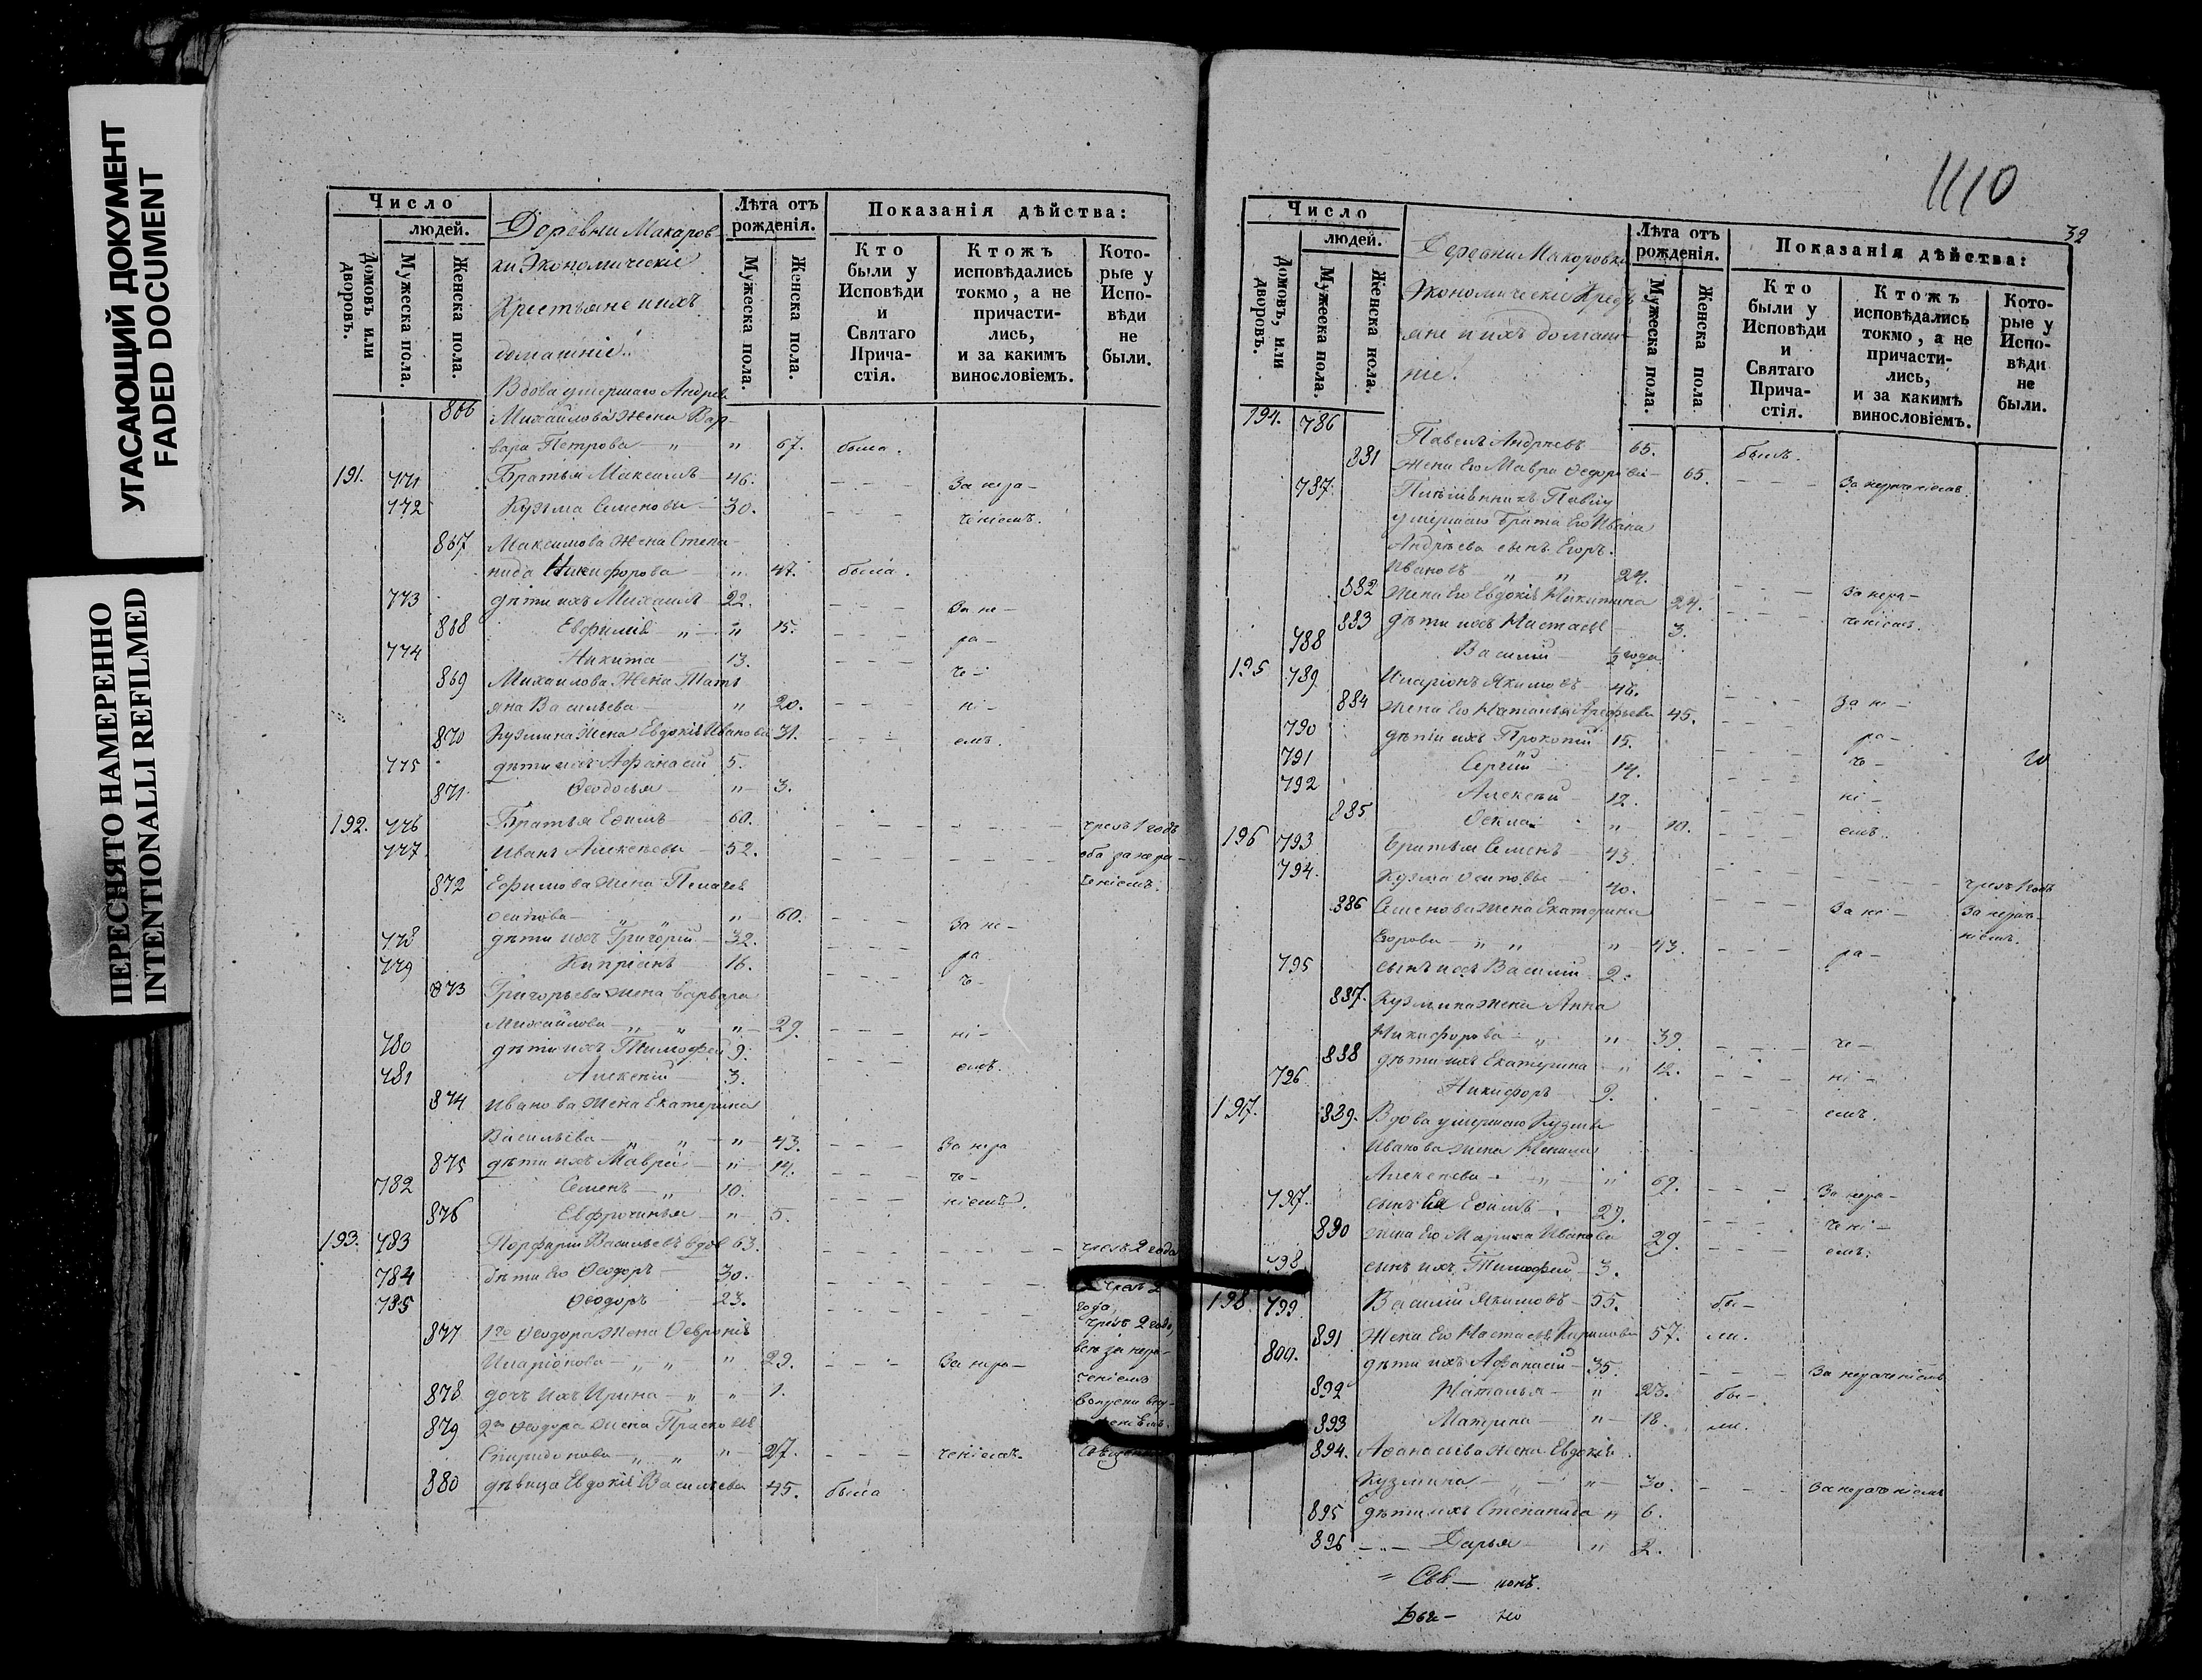 УГАСАЮЩИЙ ДОКУМЕНТ
FADED DOCUMENT
ПЕРЕСНЯТО НАМЕРЕННО
INTENTIONALLI REFILMED
Число
людей.
Домовъ или дворовъ.
Мужеска пола.
Женска пола.
Деревни Макаров-
ки Экономическіе
Крестьяне и ихъ
домашніе.
Лѣта отъ рожденія.
Мужеска пола.
Женска пола.
Показанія дѣйства:
Кто были у Исповѣди и Святаго Прича-стія.
Ктожъ исповѣдались токмо, а не причасти-лись, и за какимъ винословіемъ.
Кото-рые у Испо-вѣди не были.
Вдова умершаго Андрея
866 Михайлова жена Вар-
вара Петрова — " " 67. была.
191. 771 Братья Максимъ 46. За нера-
772 Кузьма Семеновы 30. ченіемъ.
867 Максимова жена Степа-
нида Никифорова " 47. была.
773 дѣти ихъ Михаилъ 22. За не-
868 Евфимія " " 15. ра-
774 Никита 13. че-
869 Михаилова жена Тать
яна Васильева " 20. ні-
870 Кузмина жена Евдокія Иванова 31. емъ.
775 дѣти ихъ Афанасій 5.
871 Ѳеодосья " 3.
192. 776 Братья Ефимъ 60. чрезъ 1 годъ
777 Иванъ Алексѣевы 52. оба за нера-
872 Ефимова жена Пелагея ченіемъ.
Осипова " " " 60. За не-
778 дѣти ихъ Григорій 32. ра-
779 Кипріанъ 16. че-
873 Григорьева жена Варвара
Михайлова " " " 29. ні-
780 дѣти ихъ Тимофей 9. емъ.
781 Алексѣй 3.
874 Иванова жена Екатерина
Васильева " " " 43. За нера
875 дѣти ихъ Мавра " 14. че-
782 Семенъ " 10. ніемъ.
876 Евфросинья " 5.
193. 783 Порфирій Васильевъ вдов 63. чрезъ 2 года
784 дѣти его Ѳеодоръ 30. чрезъ 2
785 Ѳеодоръ 23. года,
чрезъ 2 года,
877 1го Ѳеодора жена Ѳевронія всѣ за нера-
Иларіонова " " " 29. За нера- ченіемъ
878 дочь ихъ Ирина " " 1.
879 2го Ѳеодора жена Прасковья
Спиридонова " " " 27. ченіемъ.
880 дѣвица Евдокія Васильева 45. была
1110
32
Число
людей.
Домовъ, или дворовъ.
Мужеска пола.
Женска пола.
Деревни Макаровки
Экономическіе Крестья
яне и ихъ домаш-
ніе.
Лѣта отъ рожденія.
Мужеска пола.
Женска пола
Показанія дѣйства:
Кто были у Исповѣди и Святаго Прича-стія.
Ктожъ исповѣдались токмо, а не причасти-лись, и за какимъ винословіемъ.
Кото-рые у Испо-вѣди не были.
194. 786 Павелъ Андреевъ 65. былъ.
881 Жена его Мавра Ѳедорова 65. За нераченіемъ.
787 Племянникъ Павлу
умершаго брата его Ивана
Андрѣева сынъ Егоръ
Ивановъ " " 24.
882 Жена его Евдокія Никитина 24. За нера-
883 дѣти ихъ Настасья 3. ченіемъ.
788 Василій ½ года
195 789 Иларіонъ Якимовъ 46.
884 Жена его Наталья Арефьева 45. За не-
790 дѣти ихъ Прокопій 15. ра-
791 Сергѣй 14. че-
792 Алексѣй 12. ні-
885 Ѳекла " 10. емъ.
196 793 Братья Семенъ 43.
794. Кузма Осиповы 40. чрезъ 1 годъ
886 Семенова жена Екатерина За не- За нераче-
Егорова " " " 43. ра- ніемъ.
795 сынъ ихъ Василій 2.
887. Кузмина жена Анна
Никифорова " " 39. че-
888 дѣти ихъ Екатерина " 12. ні-
796 Никифоръ 9. емъ.
197. 889. Вдова умершаго Кузмы
Иванова жена Ненила
Алексѣева " " 69. За нера-
797. сынъ ея Ефимъ 29. чені-
890 Жена его Марина Иванова 29. емъ.
798 сынъ ихъ Тимофей 3.
198 799 Василій Якимовъ 55. бы-
891 Жена его Настасья Кирилова 57. ли.
800. дѣти ихъ Афанасій 35. За нераченіемъ
892 Наталья " 23. бы-
893 Матрена " 18. ли.
894. Афанасіева жена Евдокія
Кузмина " " 30. За нераченіемъ
895 дѣти ихъ Степанида " 6.
896 Дарья " 2.